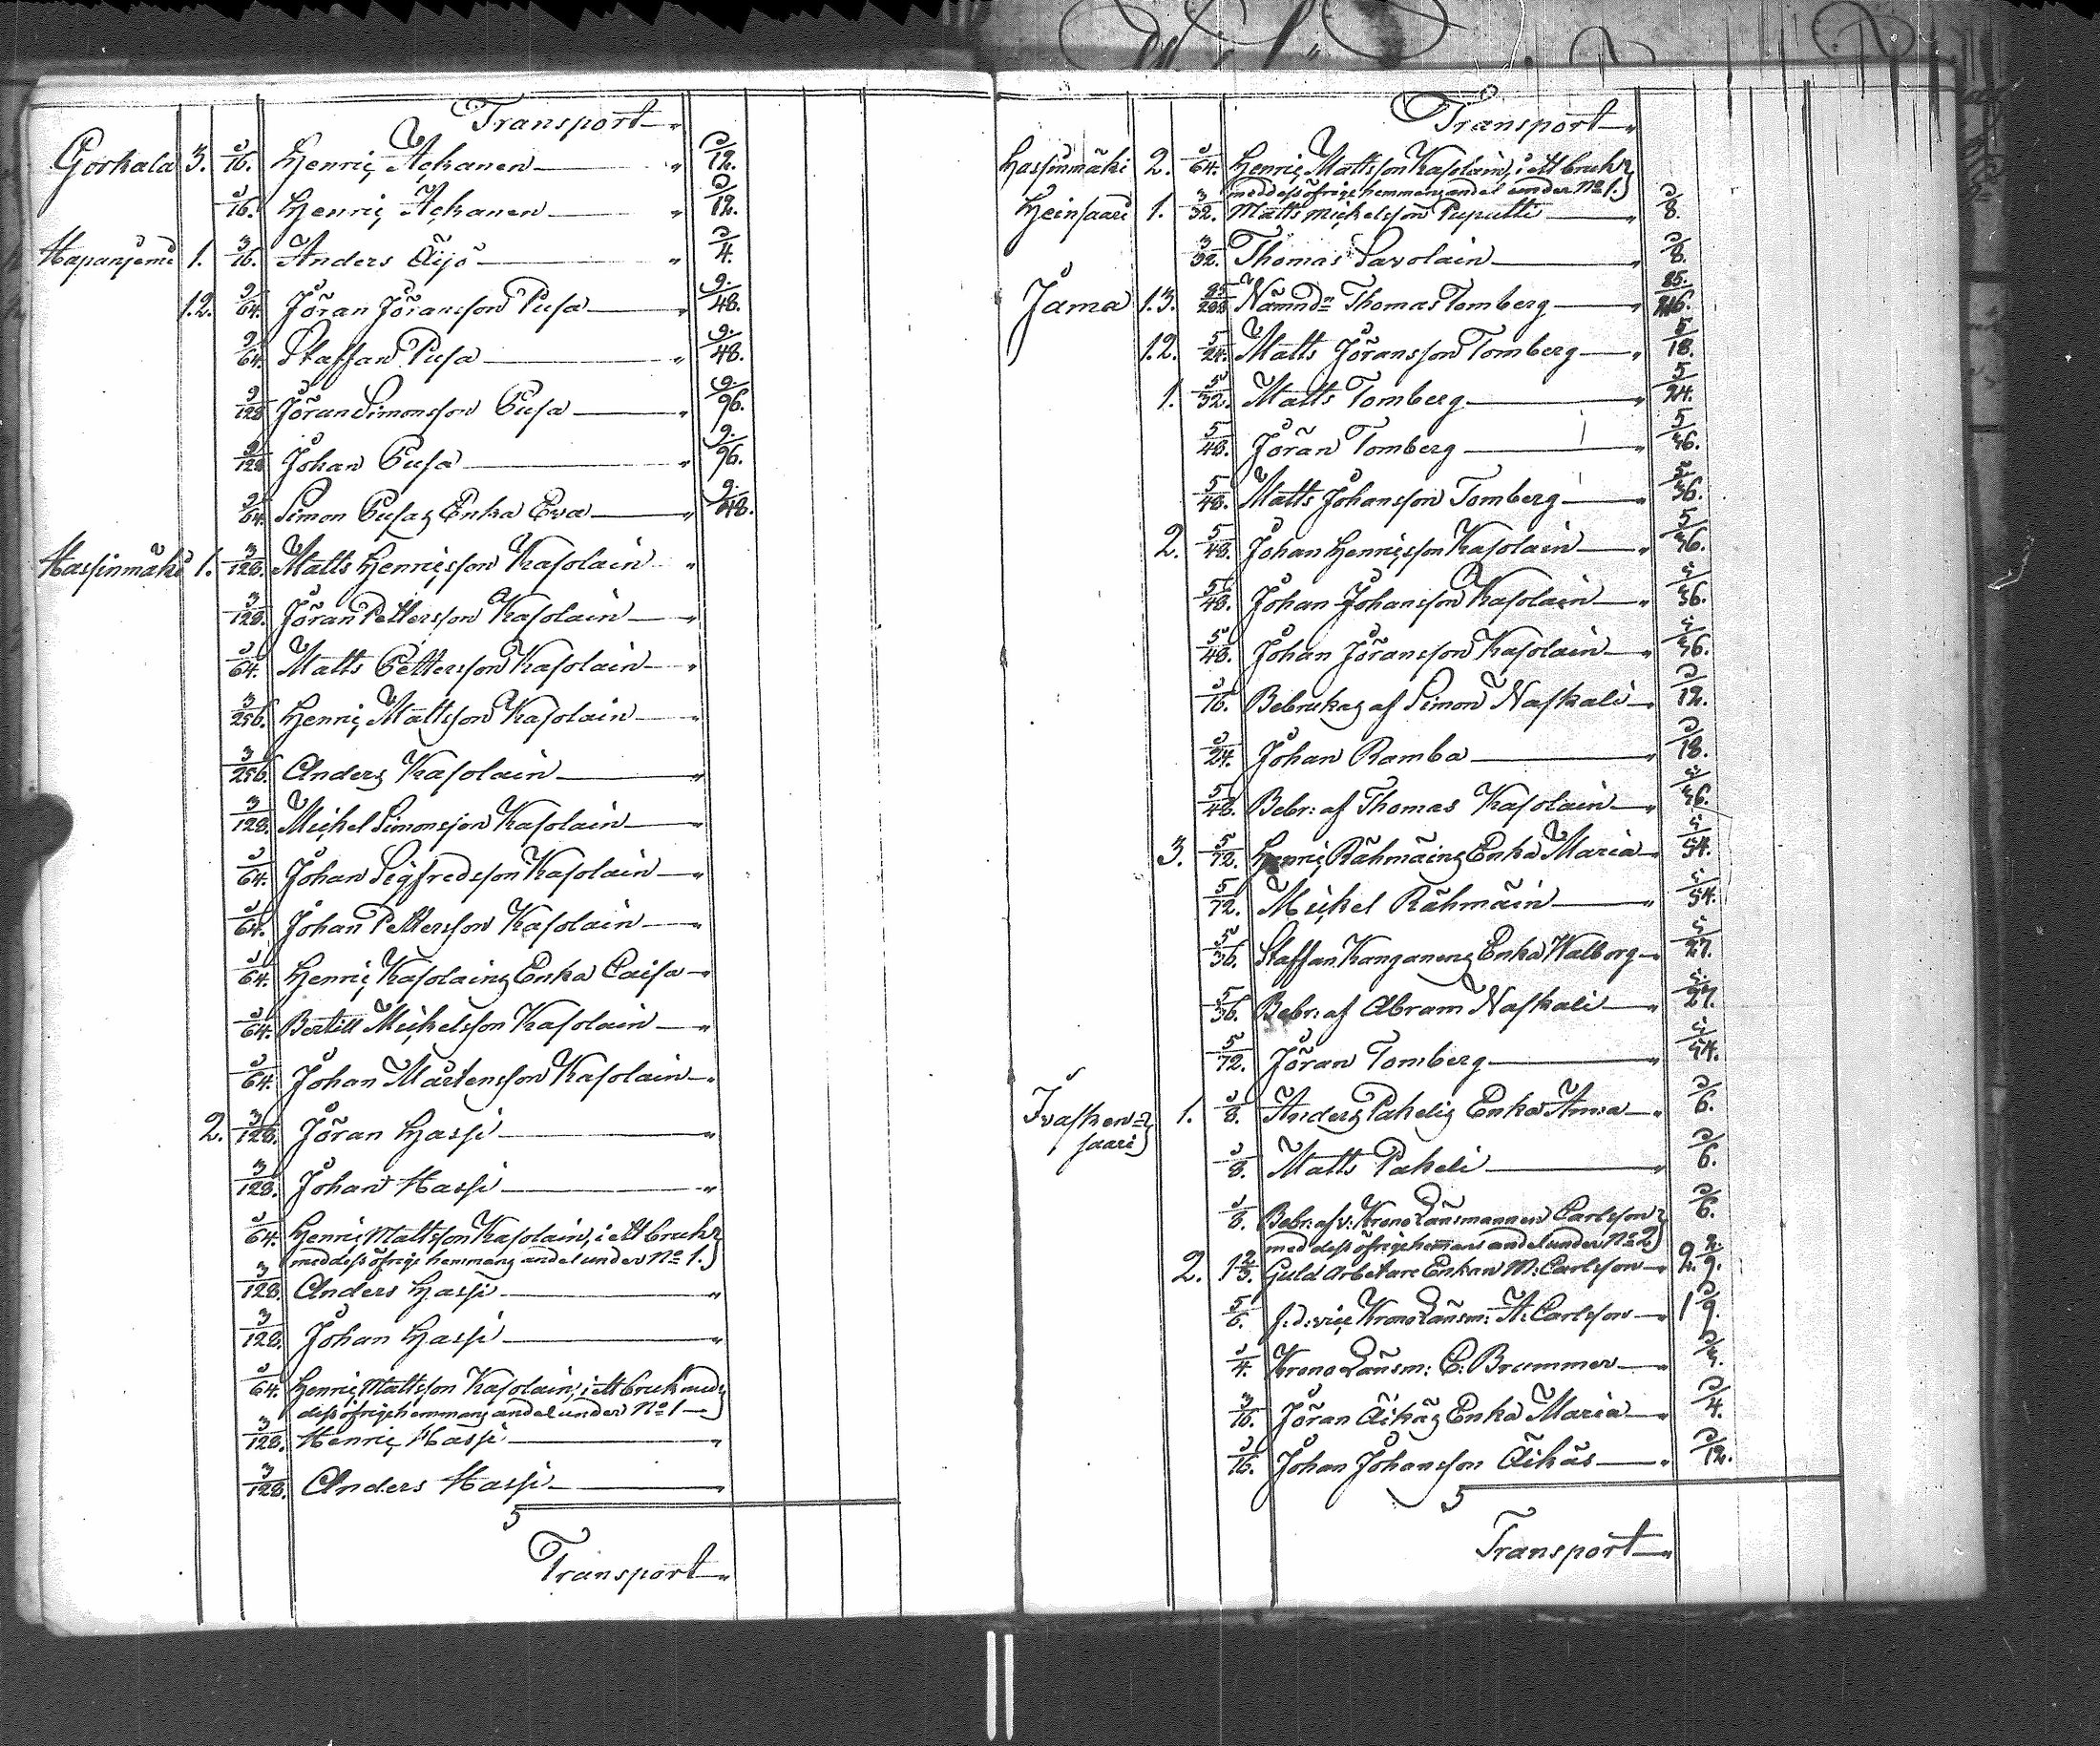 Transport
Gorkala 3. 1/16. Henric Ackanen 1/12.
1/16. Henric Ackanen 1/12.
Hapanjemi 1. 3/16. Anders Äijö 1/4.
1.2. 9/64. Jöran Jöransson Pusa 9/48.
9/64. Staffan Pusa 9/48.
9/128 Jöran Simonsson Pusa 9/96.
9/128 Johan Pusa 9/96.
9/64. Simon Pusas Enka Eva 9/48.
Hassinmäki 1. 3/128. Matts Henricsson Kasolain
3/128. Jöran Pettersson Kasolain
1/64. Matts Pettersson Kasolain
3/256. Henric Mattsson Kasolain
3/256. Anders Kasolain
3/128. Michel Simonsson Kasolain
1/64. Johan Sigfredsson Kasolain
1/64. Johan Pettersson Kasolain
1/64. Henric Kasolains Enka Caisa
1/64. Bertill Michelsson Kasolain
1/64. Johan Mårtensson Kasolain
2. 3/128. Jöran Hassi
3/128. Johan Hassi
1/64. Henric Mattsson Kasolain, i ett bruk
med dess öfrige hemmans andel under No 1.
3/128. Anders Hassi
3/128. Johan Hassi
1/64. Henric Mattsson Kasolain, i ett bruk med
dess öfrige hemmans andel under No 1
3/128. Henric Hassi
3/128. Anders Hassi
Transport
Transport
Hassinmäki 2. 1/64. Henric Mattsson Kasolain, i ett bruk
med dess öfrige hemmans andel under No 1.
Heinsaari 1. 3/32. Matts Michelsson Puputti 1/8.
3/32. Thomas Savolain 1/8.
Jama 1.3. 85/288 Nämnd: Thomas Tomberg 85/216.
1.2. 5/24. Matts Jöransson Tomberg 5/18.
1. 5/32. Matts Tomberg 5/24.
5/48. Jöran Tomberg 5/36.
5/48. Matts Johansson Tomberg 5/36.
2. 5/48. Johan Henricsson Kasolain 5/36.
5/48. Johan Johansson Kasolain 5/36.
5/48. Johan Jöransson Kasolain 5/36.
1/16. Bebrukas af Simon Naskali 1/12.
1/24. Johan Ramba 1/18.
5/48. Bebr: af Thomas Kasolain 5/36.
3. 5/72. Henric Rähmäins Enka Maria 5/54.
5/72. Michel Rähmäin 5/54.
5/36. Staffan Kanganens Enka Walborg 5/27.
5/36. Bebr: af Abram Naskali 5/27.
5/72. Jöran Tomberg 5/54.
Ivasken=
saari 1. 1/8. Anders Pakelis Enka Anna 1/6.
1/8. Matts Pakeli 1/6.
1/8. Bebr: af v: Krono Länsmannen Carlsson 1/6.
med dess öfrige hemmans andel under No 2.
2. 1 2/3. Guld Arbetare Enkan M: Carlsson 2 2/9.
5/6. f: d: vice Krono Länsm: A: Carlsson 1 1/9.
1/4. Krono Länsm: C: Brummer 1/3.
3/16. Jöran Äikäs Enka Maria 1/4.
1/16. Johan Johansson Äikäs 1/12.
Transport